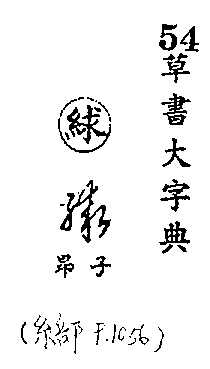 54
草書大字典
絿
子昂
(糸部 F.1056)